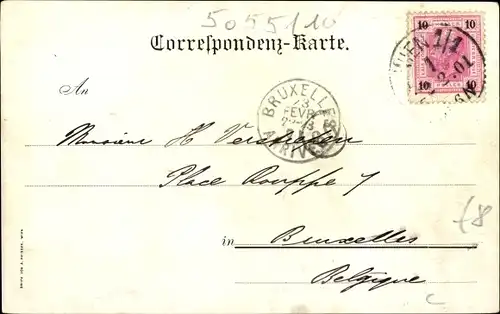 50551/10
Correspondenz-Karte.
10 10
10 10
WIEN 1/1
An
BRUXELLES
FEVR
ARRIVEE
Monsieur H Verstrepen
Place Rouppe 7
in Bruxelles
Belgique